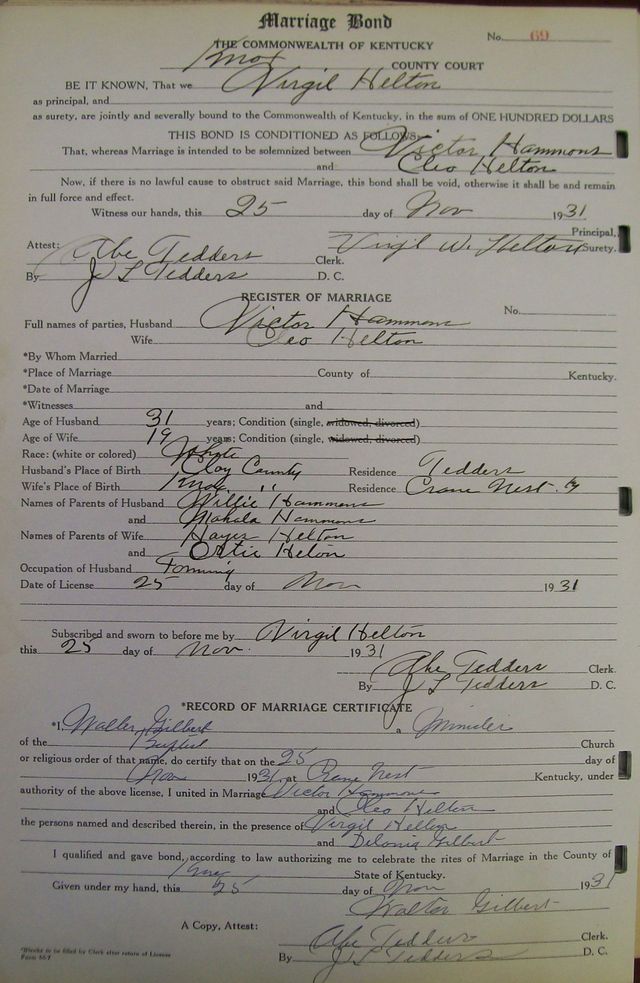 Marriage Bond
No. 69
THE COMMONWEALTH OF KENTUCKY
Knox COUNTY COURT
BE IT KNOWN, That we Virgil Helton
as principal, and
as surety, are jointly and severally bound to the Commonwealth of Kentucky, in the sum of ONE HUNDRED DOLLARS
THIS BOND IS CONDITIONED AS FOLLOWS:
That, whereas Marriage is intended to be solemnized between Victor Hammons
and Cleo Helton
Now, if there is no lawful cause to obstruct said Marriage, this bond shall be void, otherwise it shall be and remain
in full force and effect.
Witness our hands, this 25 day of Nov 1931
Principal,
Attest: Abe Tedders Clerk. Virgil W. Helton Surety.
By J L Tedders D. C.
REGISTER OF MARRIAGE
No.
Full names of parties, Husband Victor Hammons
Wife Cleo Helton
*By Whom Married
*Place of Marriage County of Kentucky.
*Date of Marriage
*Witnesses and
Age of Husband 31 years; Condition (single, widowed, divorced)
Age of Wife 19 years; Condition (single, widowed, divorced)
Race: (white or colored) White
Husband's Place of Birth Clay County Residence Tedders
Wife's Place of Birth Knox " Residence Crane Nest Ky
Names of Parents of Husband Willie Hammons
and Mahala Hammons
Names of Parents of Wife Hayes Helton
and Ortie Helon
Occupation of Husband Farming
Date of License 25 day of Nov 1931
Subscribed and sworn to before me by Virgil Helton
this 25 day of Nov. 1931
Abe Tedders Clerk.
By J L Tedders D. C.
*RECORD OF MARRIAGE CERTIFICATE
*I, Walter Gilbert a Minister
of the Baptist Church
or religious order of that name, do certify that on the 25 day of
Nov 1931 at Crane Nest Kentucky, under
authority of the above license, I united in Marriage Victor Hammons
and Cleo Helton
the persons named and described therein, in the presence of Virgil Helton
and Gilbert
I qualified and gave bond, according to law authorizing me to celebrate the rites of Marriage in the County of
Knox State of Kentucky.
Given under my hand, this 25 day of Nov 1931
Walter Gilbert
A Copy, Attest:
Abe Tedders Clerk.
By J L Tedders D. C.
*Blanks to be filled by Clerk after return of License